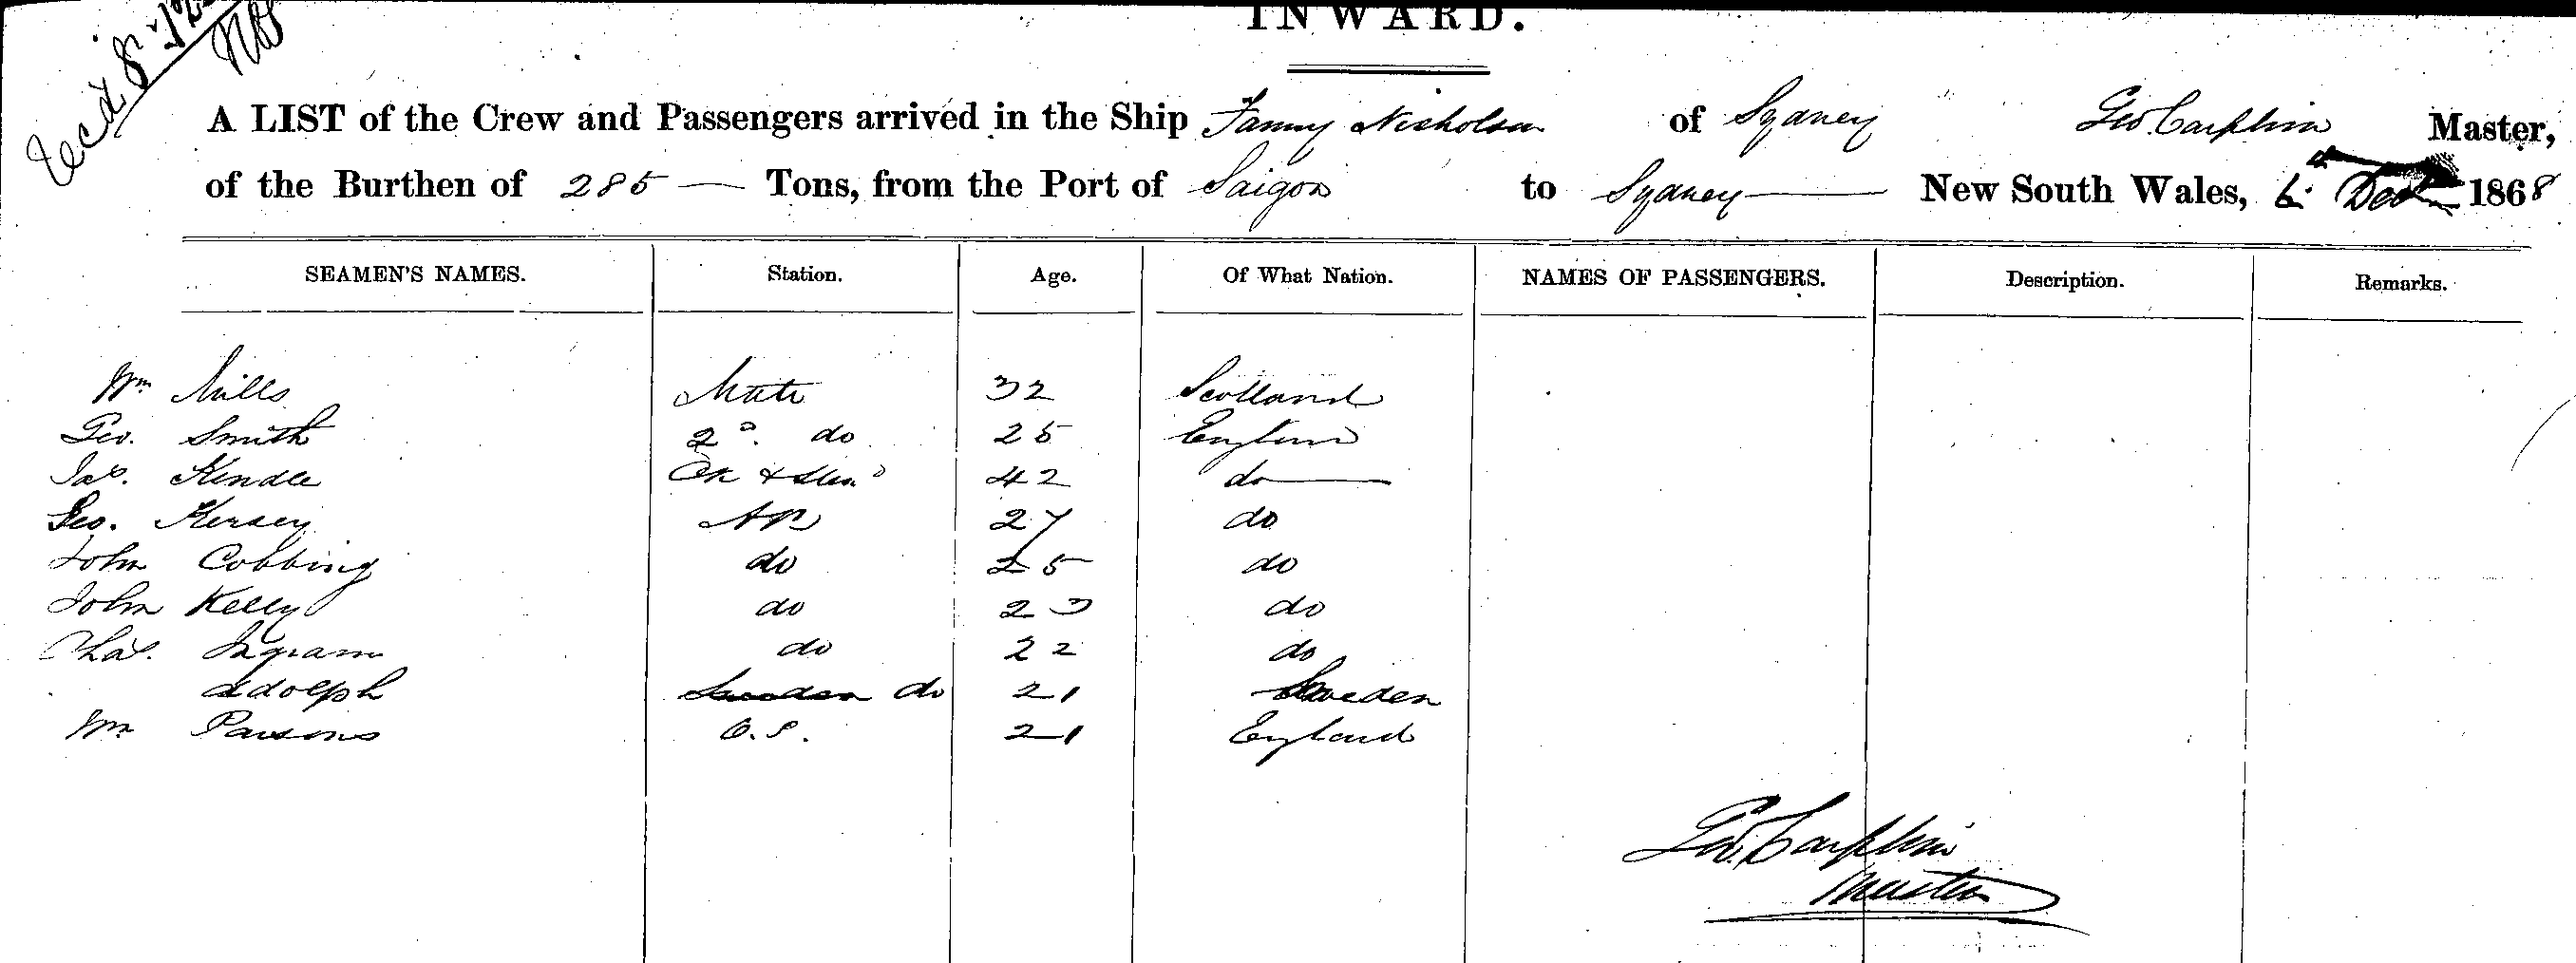 Recd 8
INWARD.
A LIST of the Crew and Passengers arrived in the Ship Fanny Nicholson of Sydney Geo. Master,
of the Burthen of 285 Tons, from the Port of Saigon to Sydney New South Wales, 6 Dec 1868
SEAMEN'S NAMES. Station. Age. Of What Nation. NAMES OF PASSENGERS. Description. Remarks.
Wm Mills Mate 32 Scotland
Geo. Smith 2d. do 25 England
Jas. Kendle Ck & Stew 42 do
Geo. Kersey AB 27 do
John Cobbing do 25 do
John Kelly do 23 do
Chas. Ingram do 22 do
Adolph Sweden do 21 Sweden
Wm Parsons O.S. 21 England
Geo.
Master